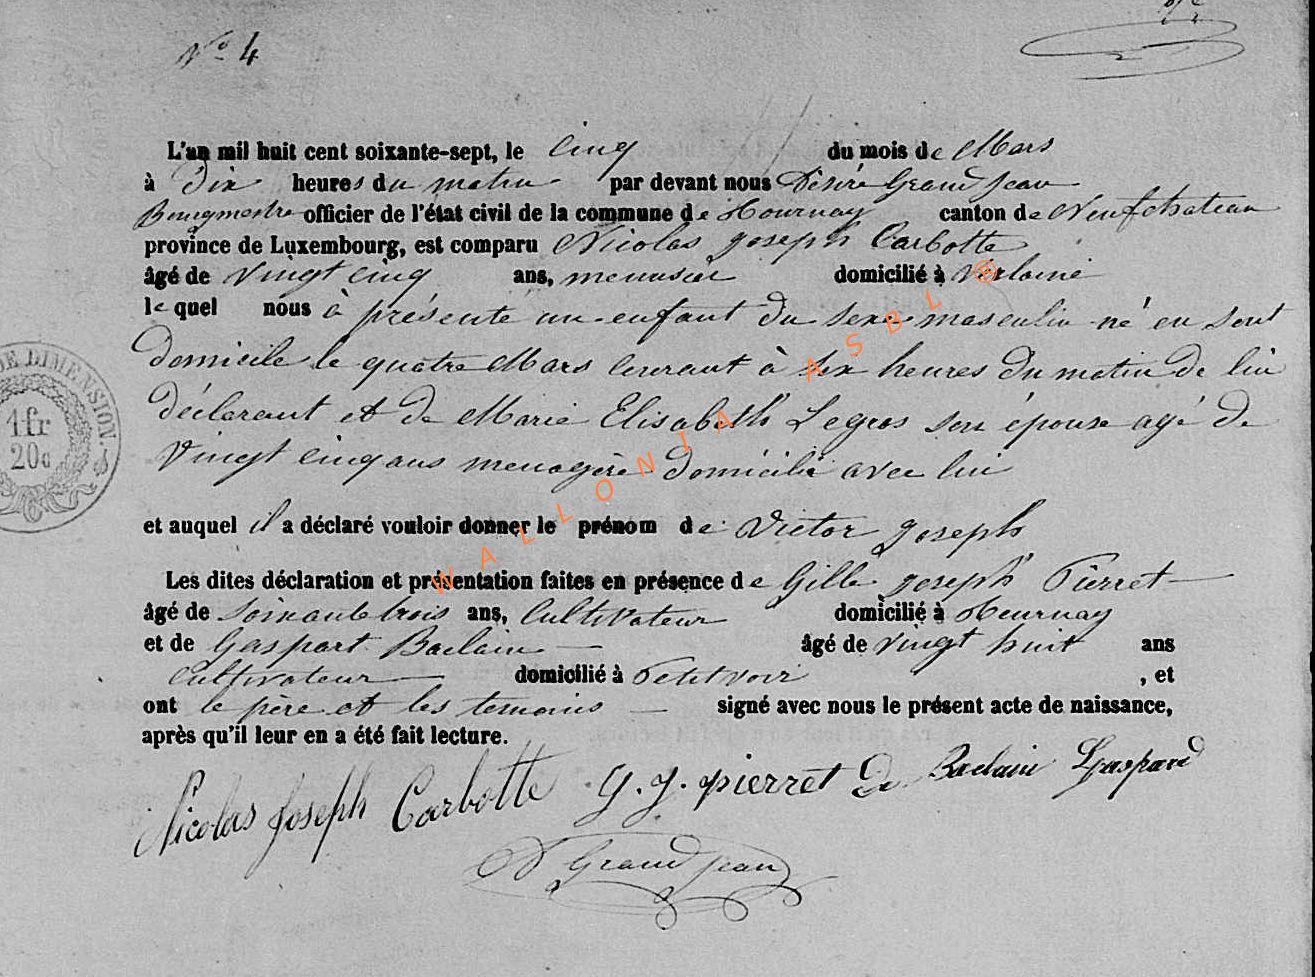 N° 4
L'an mil huit cent soixante-sept, le cinq du mois de Mars
à Dix heures du matin par devant nous Désiré Grand Jean
Bourgmestre officier de l'état civil de la commune de Hournay canton de Neufchateau
province de Luxembourg, est comparu Nicolas Joseph Carbotte
âgé de vingt cinq ans, menusier domicilié à Verlaine
le quel nous à présenté un enfant du sexe masculin né en sont
domicile le quatre Mars courant à six heures du matin de lui
déclarant et de Marie Elisabeth Legros son épouse agé de
vingt cinq ans menagère domicilié avec lui
et auquel il a déclaré vouloir donner le prénom de Victor Joseph
Les dites déclaration et présentation faites en présence de Gille Joseph Pierret
âgé de soixante trois ans, cultivateur domicilié à Heurnay
et de Gaspart Baclain âgé de vingt huit ans
cultivateur domicilié à Petitvoir , et
ont le père et les temoins signé avec nous le présent acte de naissance,
après qu'il leur en a été fait lecture.
Nicolas Joseph Carbotte G. J. pierret Baclain Gaspard
D Grand Jean
DE DIMENSION
1 fr
20c
WALLONIA ASBL ®